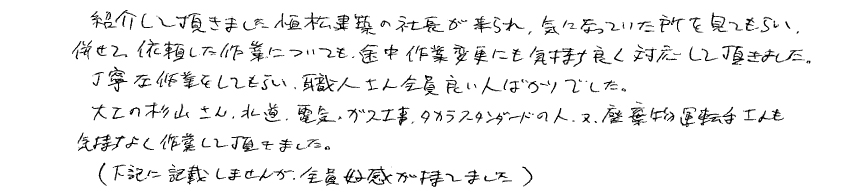 紹介して頂きました植松建築の社長が来られ、気になっていた所を見てもらい、
併せて、依頼した作業についても、途中作業変更にも気持ち良く対応して頂きました。
丁寧な作業をしてもらい、職人さん全員良い人ばかりでした。
大工の杉山さん、水道、電気、ガス工事、タカラスタンダードの人、又、産業廃棄物運転手さんも
気持ちよく作業して頂きました。
(下記に記載しませんが、全員好感が持てました)